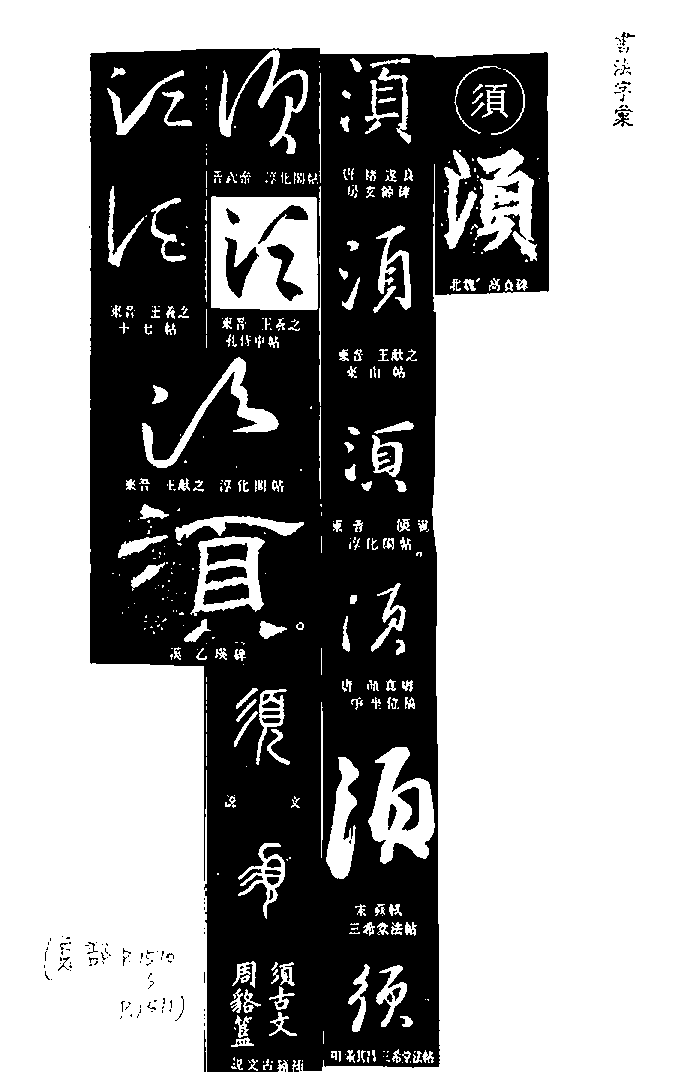 書法字彙
須
須
北魏 高貞碑
須
唐 褚遂良
房玄齡碑
須
東晉 王獻之
東山帖
須
東晉
淳化閣帖
須
唐 顏真卿
爭坐位稿
須
宋 蘇軾
三希堂法帖
須
明 董其昌 三希堂法帖
須
晉武帝 淳化閣帖
須
東晉 王羲之
孔侍中帖
須
須
東晉 王羲之
十七帖
須
東晉 王獻之 淳化閣帖
須
漢 乙瑛碑
須
說文
須
須古文
周貉簋
說文古籀補
(頁部 P.1510
P.1511)